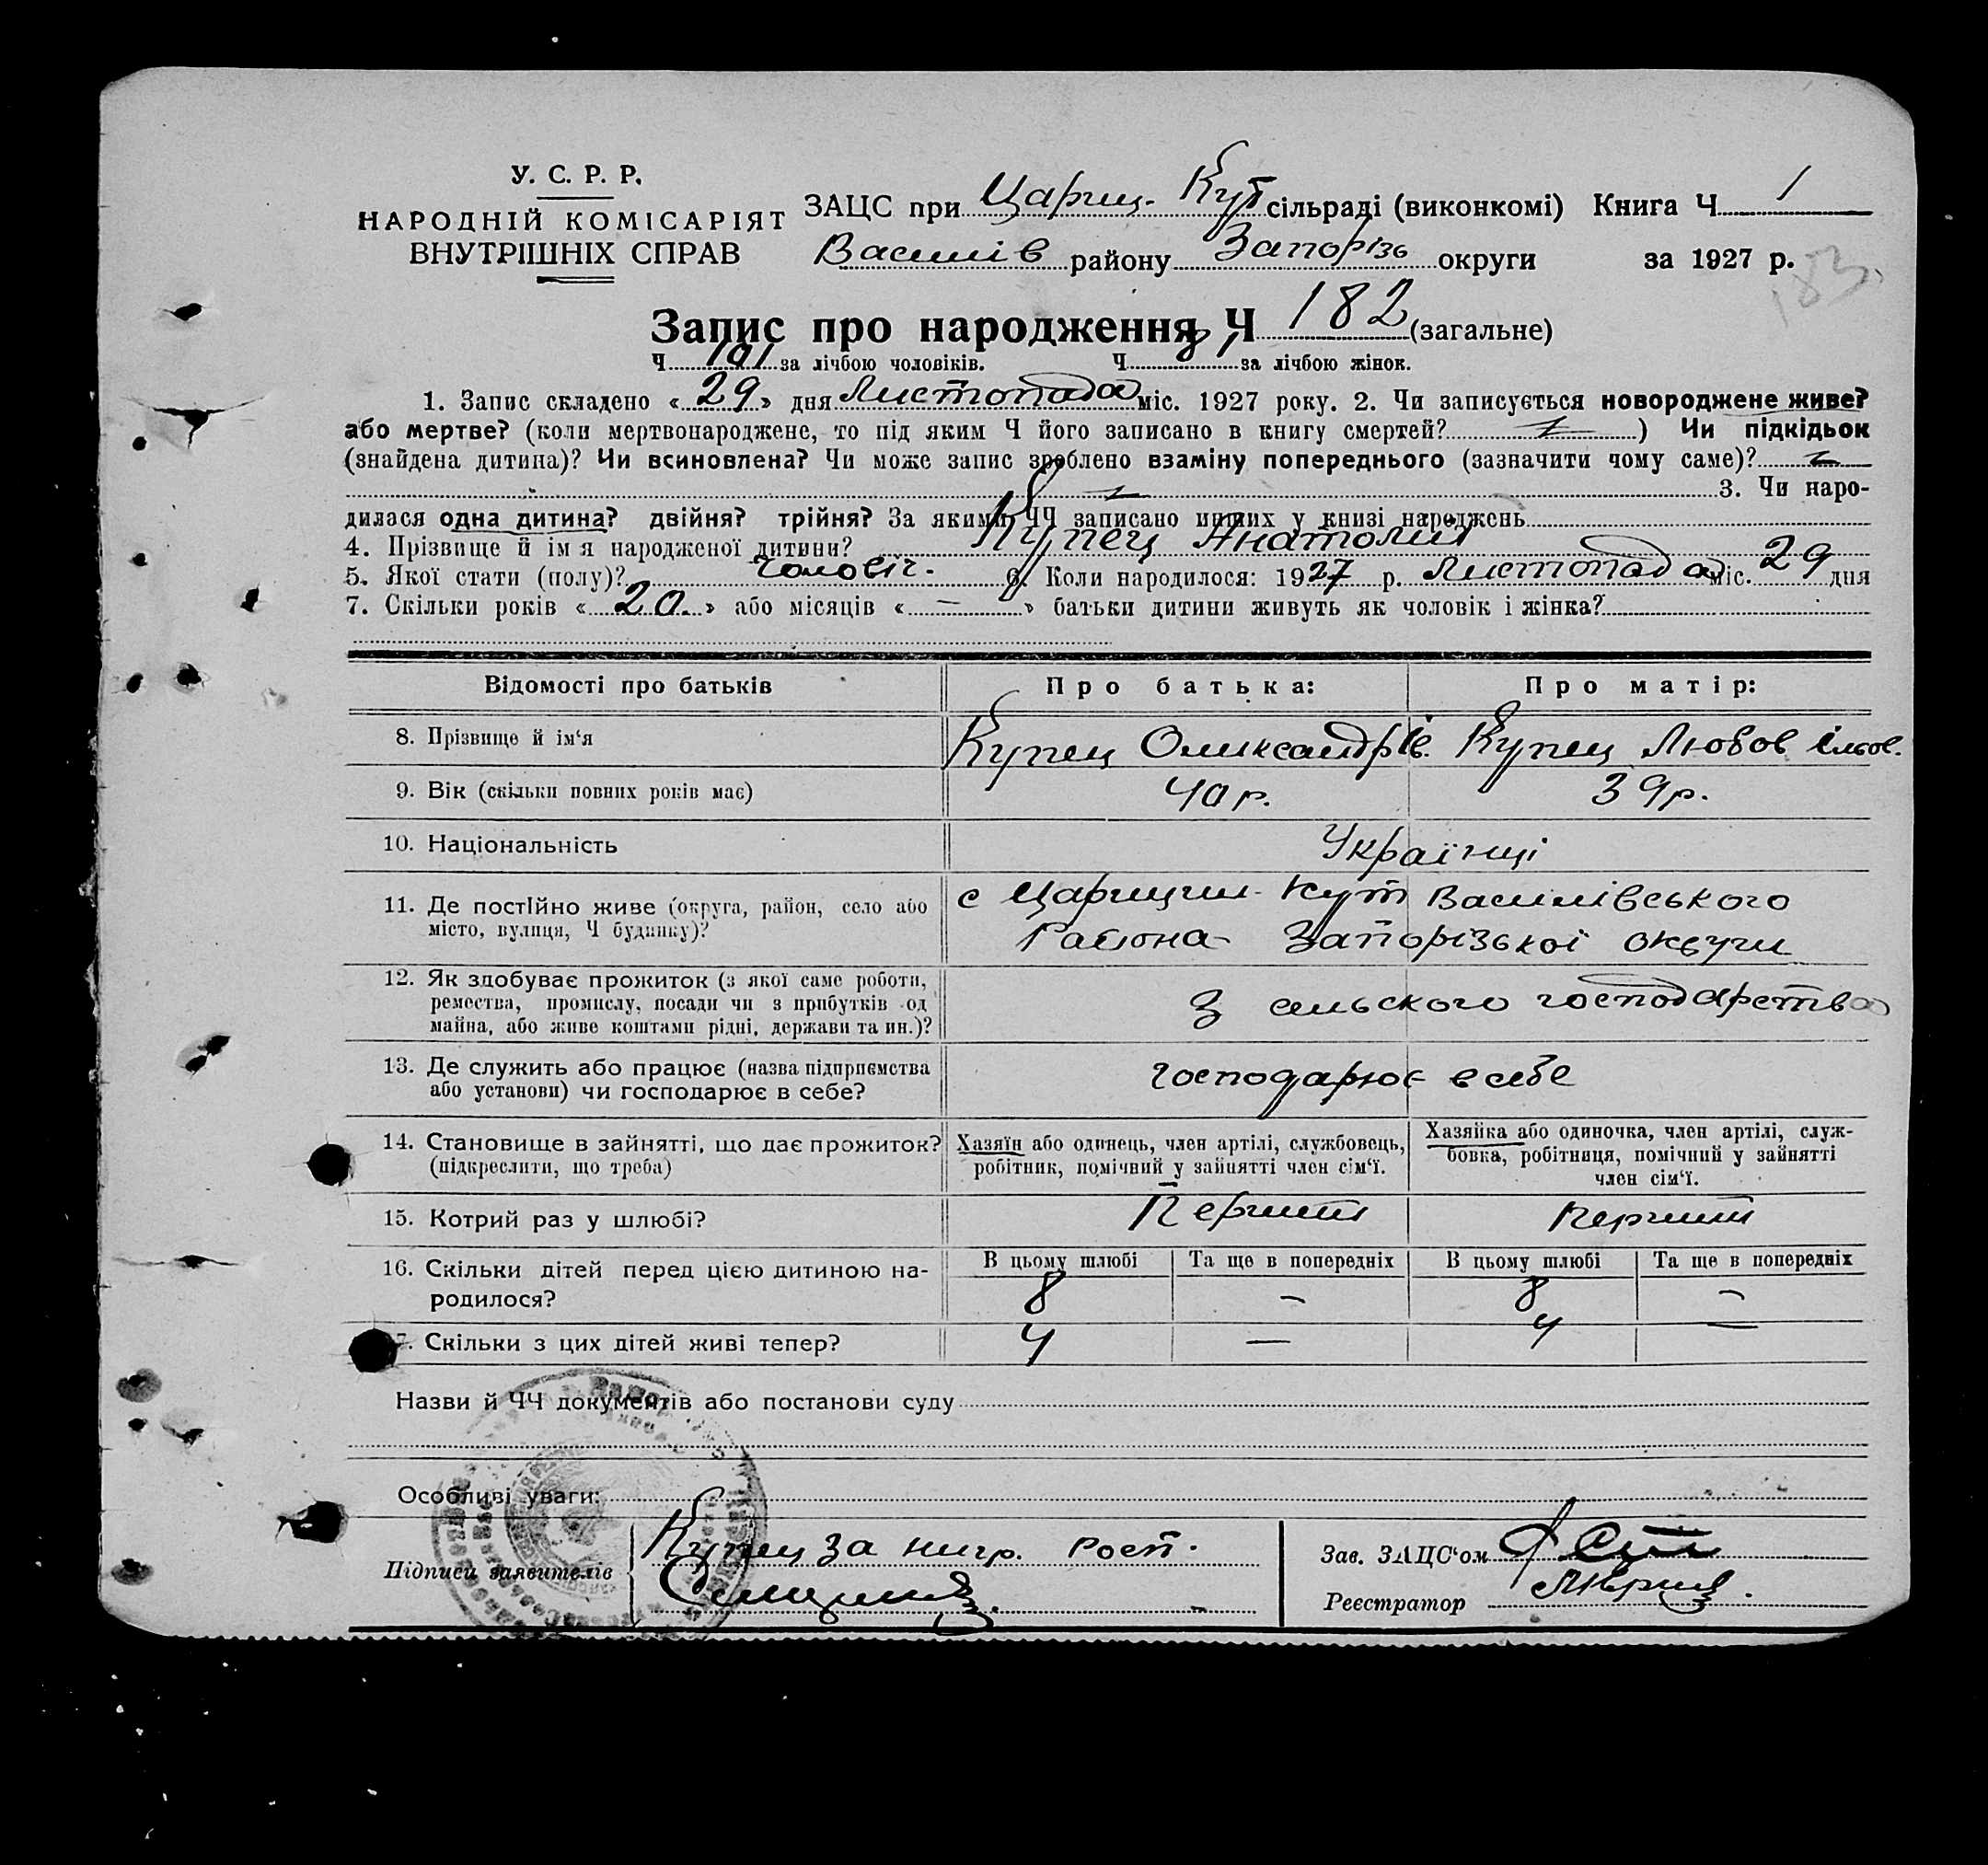 У. С. Р. Р.
НАРОДНІЙ КОМІСАРІЯТ
ВНУТРІШНІХ СПРАВ
ЗАЦС при Цариц. Кут сільраді (виконкомі) Книга Ч 1
Василів району Запорізь округи за 1927 р.
183
Запис про народження Ч 182 (загальне)
Ч 101 за лічбою чоловіків. Ч 81 за лічбою жінок.
1. Запис складено « 29 » дня Листопада міс. 1927 року. 2. Чи записується новороджене живе?
або мертве? (коли мертвонароджене, то під яким Ч його записано в книгу смертей? ) Чи підкідьок
(знайдена дитина)? Чи всиновлена? Чи може запис зроблено взаміну попереднього (зазначити чому саме)?
3. Чи наро-
дилася одна дитина? двійня? трійня? За якими ЧЧ записано инших у книзі народжень
4. Прізвище й ім я народженої дитини? Купец Анатолий
5. Якої стати (полу)? чоловіч. 6. Коли народилося: 1927 р. Листопада міс. 29 дня
7. Скільки років « 20 » або місяців « — » батьки дитини живуть як чоловік і жінка?
Відомості про батьків Про батька: Про матір:
8. Прізвище й ім‘я Купец Олександр Ів. Купец Любов Ільов.
9. Вік (скільки повних років має) 40 р. 39 р.
10. Національність Українці
11. Де постійно живе (округа, район, село або с Царицин-Кут Василівського
місто, вулиця, Ч будинку)? Района Запорізької округи
12. Як здобуває прожиток (з якої саме роботи,
ремества, промислу, посади чи з прибутків од З сельского господарства
майна, або живе коштами рідні, держави та ин.)?
13. Де служить або працює (назва підприємства господарює в себе
або установи) чи господарює в себе?
14. Становище в зайнятті, що дає прожиток? Хазяїн або одинець, член артілі, службовець, Хазяйка або одиночка, член артілі, служ-
(підкреслити, що треба) робітник, помічний у зайнятті член сім‘ї. бовка, робітниця, помічний у зайнятті
член сім‘ї.
15. Котрий раз у шлюбі? Перший Перший
16. Скільки дітей перед цією дитиною на- В цьому шлюбі Та ще в попередніх В цьому шлюбі Та ще в попередніх
родилося? 8 — 8 —
17. Скільки з цих дітей живі тепер? 4 — 4 —
Назви й ЧЧ документів або постанови суду
Особливі уваги:
Підписи заявителів Купец за
Зав. ЗАЦС‘ом
Реєстратор